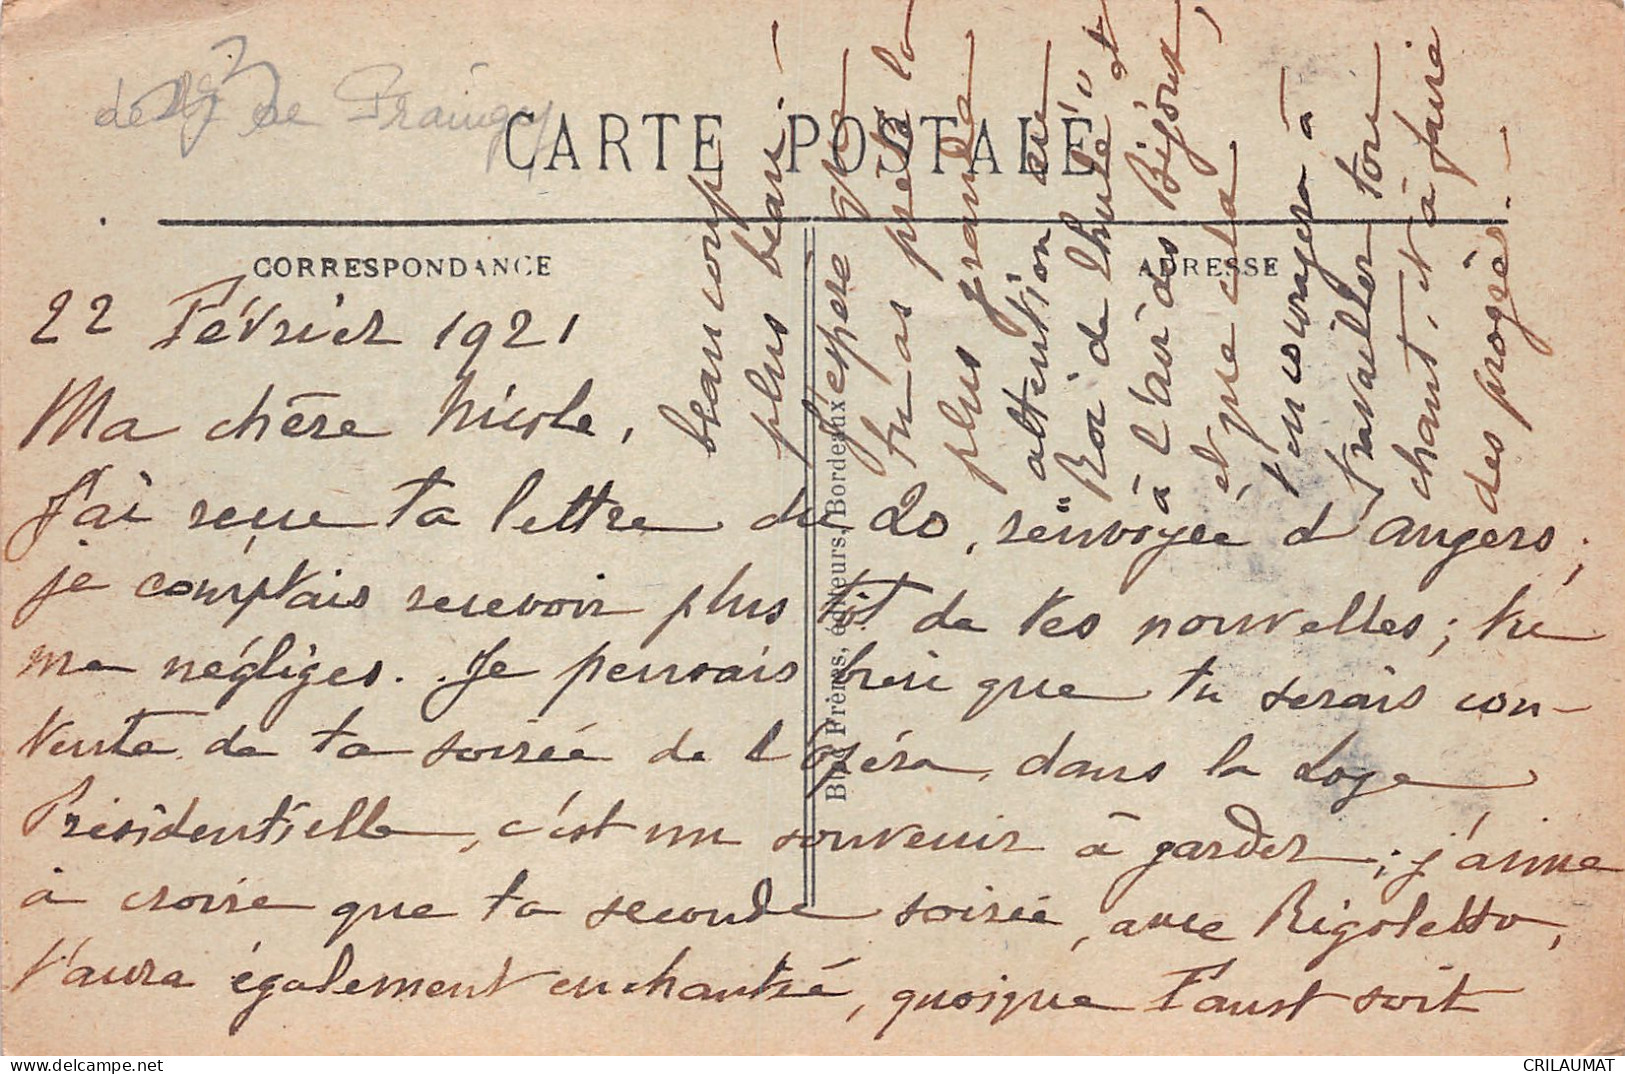 de de
CARTE POSTALE
CORRESPONDANCE
ADRESSE
22 Février 1921
Ma chère Nicole,
J'ai reçue ta lettre du 20, renvoyée d'Angers;
je comptais recevoir plus tôt de tes nouvelles; tu
me négliges. Je pensais bien que tu serais con-
tente de ta soirée de l'Opéra, dans la Loge
Présidentielle, c'est un souvenir à garder; j'aime
à croire que ta seconde soirée, avec Rigoletto,
t'aura également enchantée, quoique Faust soit
beaucoup
plus beau.
J'espère que
tu as prêté la
plus grande
attention au
"Roi de Thulé" et
à l'air des Bijoux,
et que cela
t'encouragera à
travailler ton
chant, et à faire
des progrès.
Frères, éditeurs, Bordeaux
delcampe.net
CRILAUMAT